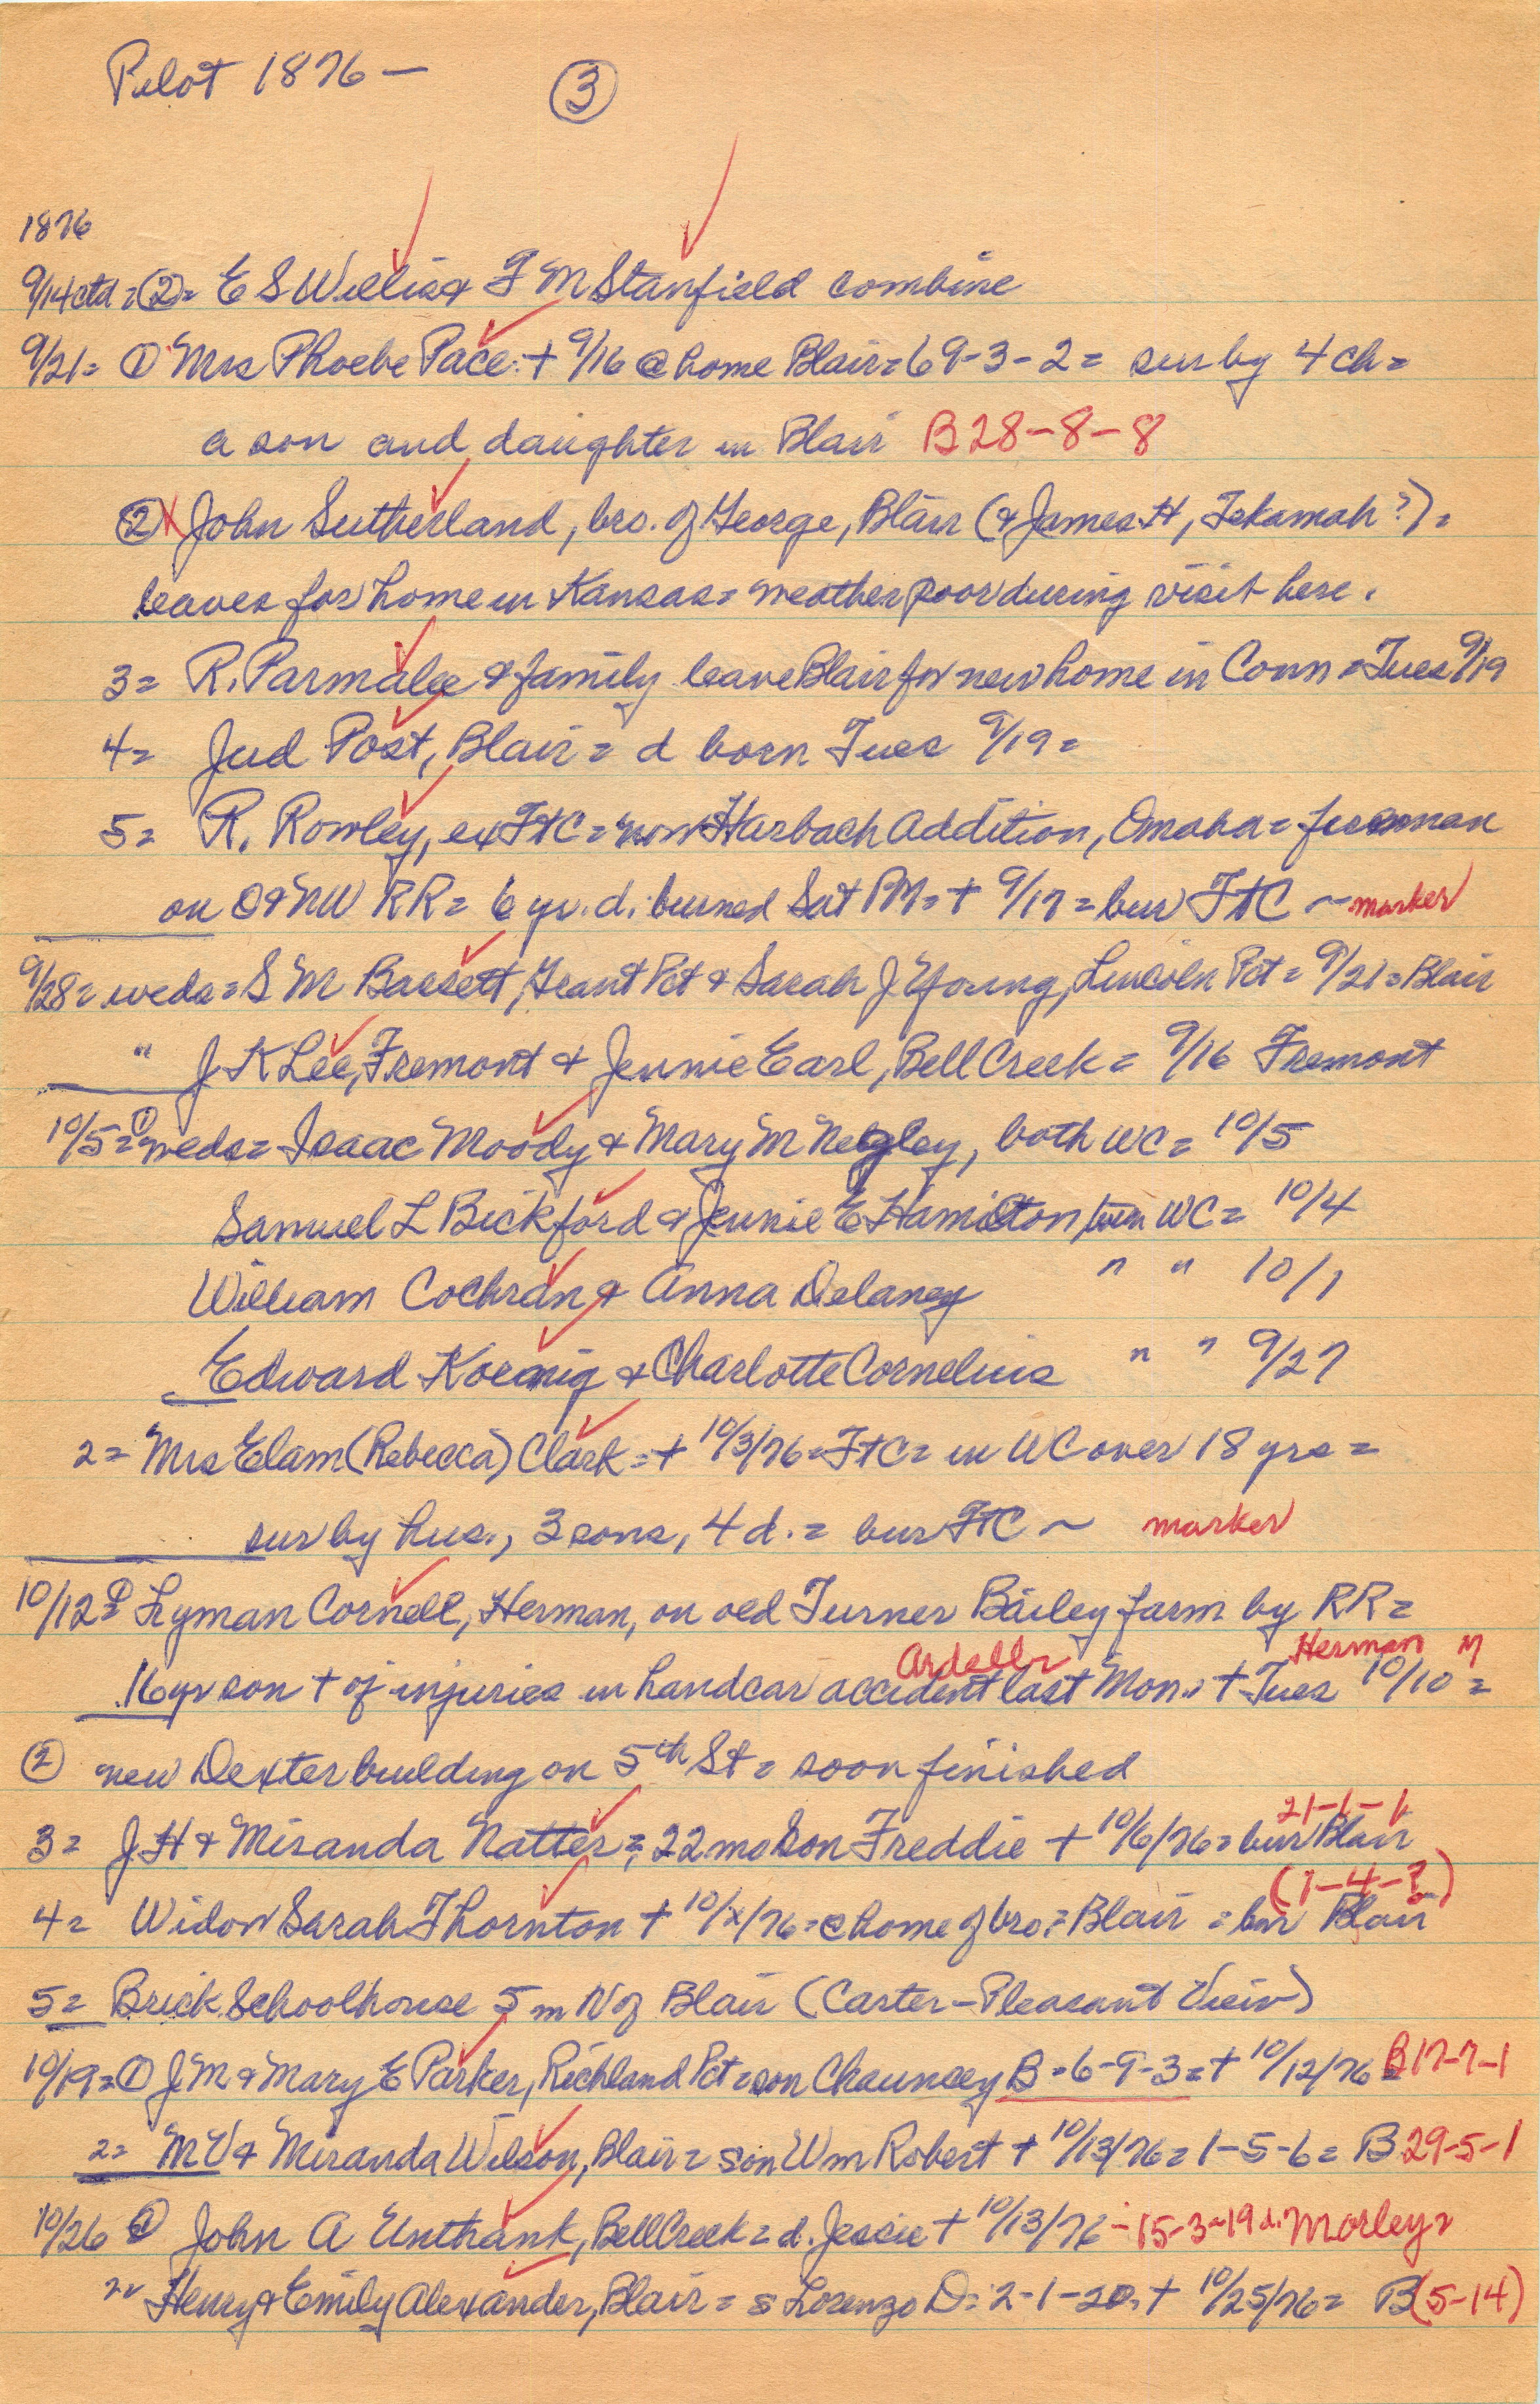 Pilot 1876 —
③
1876
9/14 ctd = ② = E S Willis & F M Stanfield combine
9/21 = ① Mrs Phoebe Pace = + 9/16 @ home Blair = 69-3-2 = sur by 4 ch =
a son and daughter in Blair B 28-8-8
② X John Sutherland, bro. of George, Blair (& James H, Tekamah?) =
leaves for home in Kansas = weather poor during visit here.
3 = R. Parmalee & family leave Blair for new home in Conn = Tues 9/19
4 = Jud Post, Blair = d born Tues 9/19 =
5 = R. Rowley, ex FtC = now Harbach Addition, Omaha = foreman
on O & NW RR = 6 yr. d. burned Sat PM = + 9/17 = bur FtC ~ marker
9/28 = weds = S M Bassett, Grant Pct & Sarah J Young, Lincoln Pct = 9/21 = Blair
" J K Lee, Fremont & Jennie Earl, Bell Creek = 9/16 Fremont
10/5 = ① weds = Isaac Moody & Mary M Negley, both WC = 10/5
Samuel L Bickford & Jennie E Hamilton, WC = 10/4
William Cochran & Anna Delaney " " 10/1
Edward Koenig & Charlotte Cornelius " " 9/27
2 = Mrs Elam (Rebecca) Clark = + 10/3/76 = FtC = in WC over 18 yrs =
sur by hus., 3 sons, 4 d. = bur FtC ~ marker
10/12 = ① Lyman Cornell, Herman, on old Turner Bailey farm by RR =
Herman
16 yr son + of injuries in handcar accident last Mon. = + Tues 10/10 =
② new Dexter building on 5th St = soon finished
21-1-1
3 = J H & Miranda Natter = 22 mo son Freddie + 10/6/76 = bur Blair
(7-4-?)
4 = Widow Sarah Thornton + 10/x/76 = @ home of bro = Blair = bur Blair
5 = Brick Schoolhouse 5 m N of Blair (Carter-Pleasant View)
10/19 = ① J M & Mary E Parker, Richland Pct = son Chauncey B = 6-9-3 = + 10/12/76 = B 17-7-1
2 = M V & Miranda Wilson, Blair = son Wm Robert + 10/13/76 = 1-5-6 = B 29-5-1
10/26 ① John A Unthank, Bell Creek = d. Jessie + 10/13/76 - 15-3-19 d. Morley =
2 = Henry & Emily Alexander, Blair = s Lorenzo D = 2-1-20. + 10/25/76 = B (5-14)